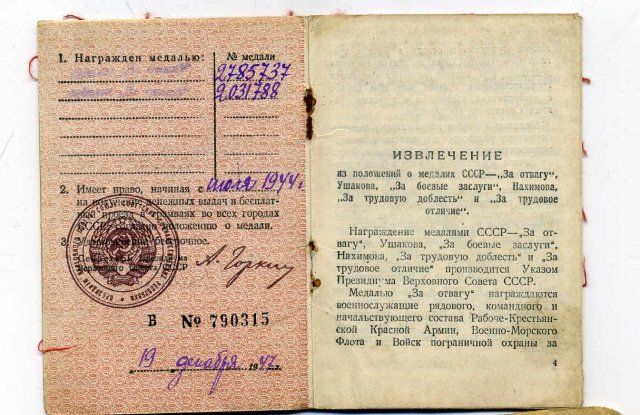 1. Награжден медалью:
№ медали
2785737
2031788
2. Имеет право, начиная с июля 1944 г.
на получение денежных выдач и бесплат-
ный проезд в трамваях во всех городах
СССР, согласно положению о медали.
3. бессрочное.
Секретарь Президиума
Верховного Совета СССР
А. Горкин
В № 790315
19 декабря 1947 г.
ИЗВЛЕЧЕНИЕ
из положений о медалях СССР—„За отвагу",
Ушакова, „За боевые заслуги", Нахимова,
„За трудовую доблесть" и „За трудовое
отличие".
Награждение медалями СССР—„За от-
вагу", Ушакова, „За боевые заслуги",
Нахимова, „За трудовую доблесть" и „За
трудовое отличие" производится Указом
Президиума Верховного Совета СССР.
Медалью „За отвагу" награждаются
военнослужащие рядового, командного и
начальствующего состава Рабоче-Крестьян-
ской Красной Армии, Военно-Морского
Флота и Войск пограничной охраны за
4